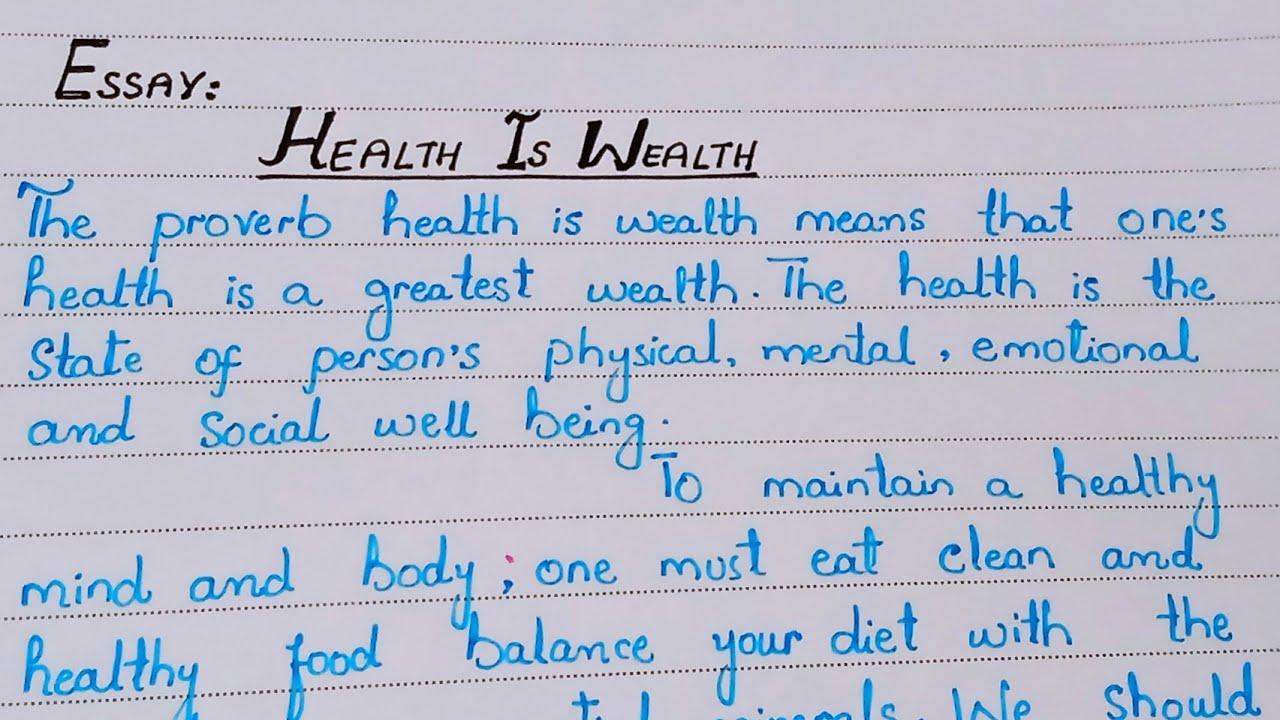 ESSAY:
HEALTH IS WEALTH
The proverb health is wealth means that one's
health is a greatest wealth. The health is the
State of person's physical, mental, emotional
and Social well being.
To maintain a healthy
mind and body; one must eat clean and
healthy food balance your diet with the
minerals. We should